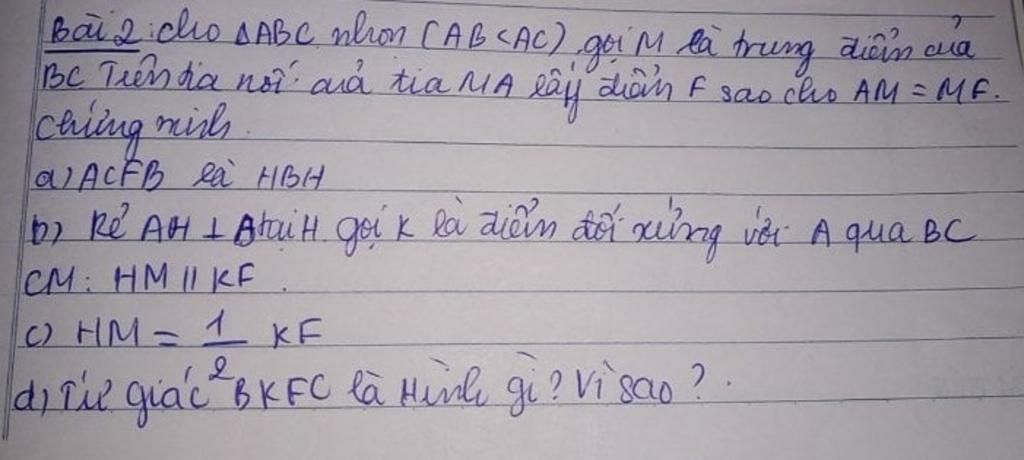 Bài 2: cho ΔABC nhọn (AB<AC), gọi M là trung điểm của
BC Trên tia nối của tia MA lấy điểm F sao cho AM = MF.
Chứng minh.
a) ACFB là HBH
b) Kẻ AH ⊥ tại H gọi K là điểm đối xứng với A qua BC
CM: HM // KF.
c) HM = 1/2 KF
d) Tứ giác BKFC là Hình gì? Vì sao?.